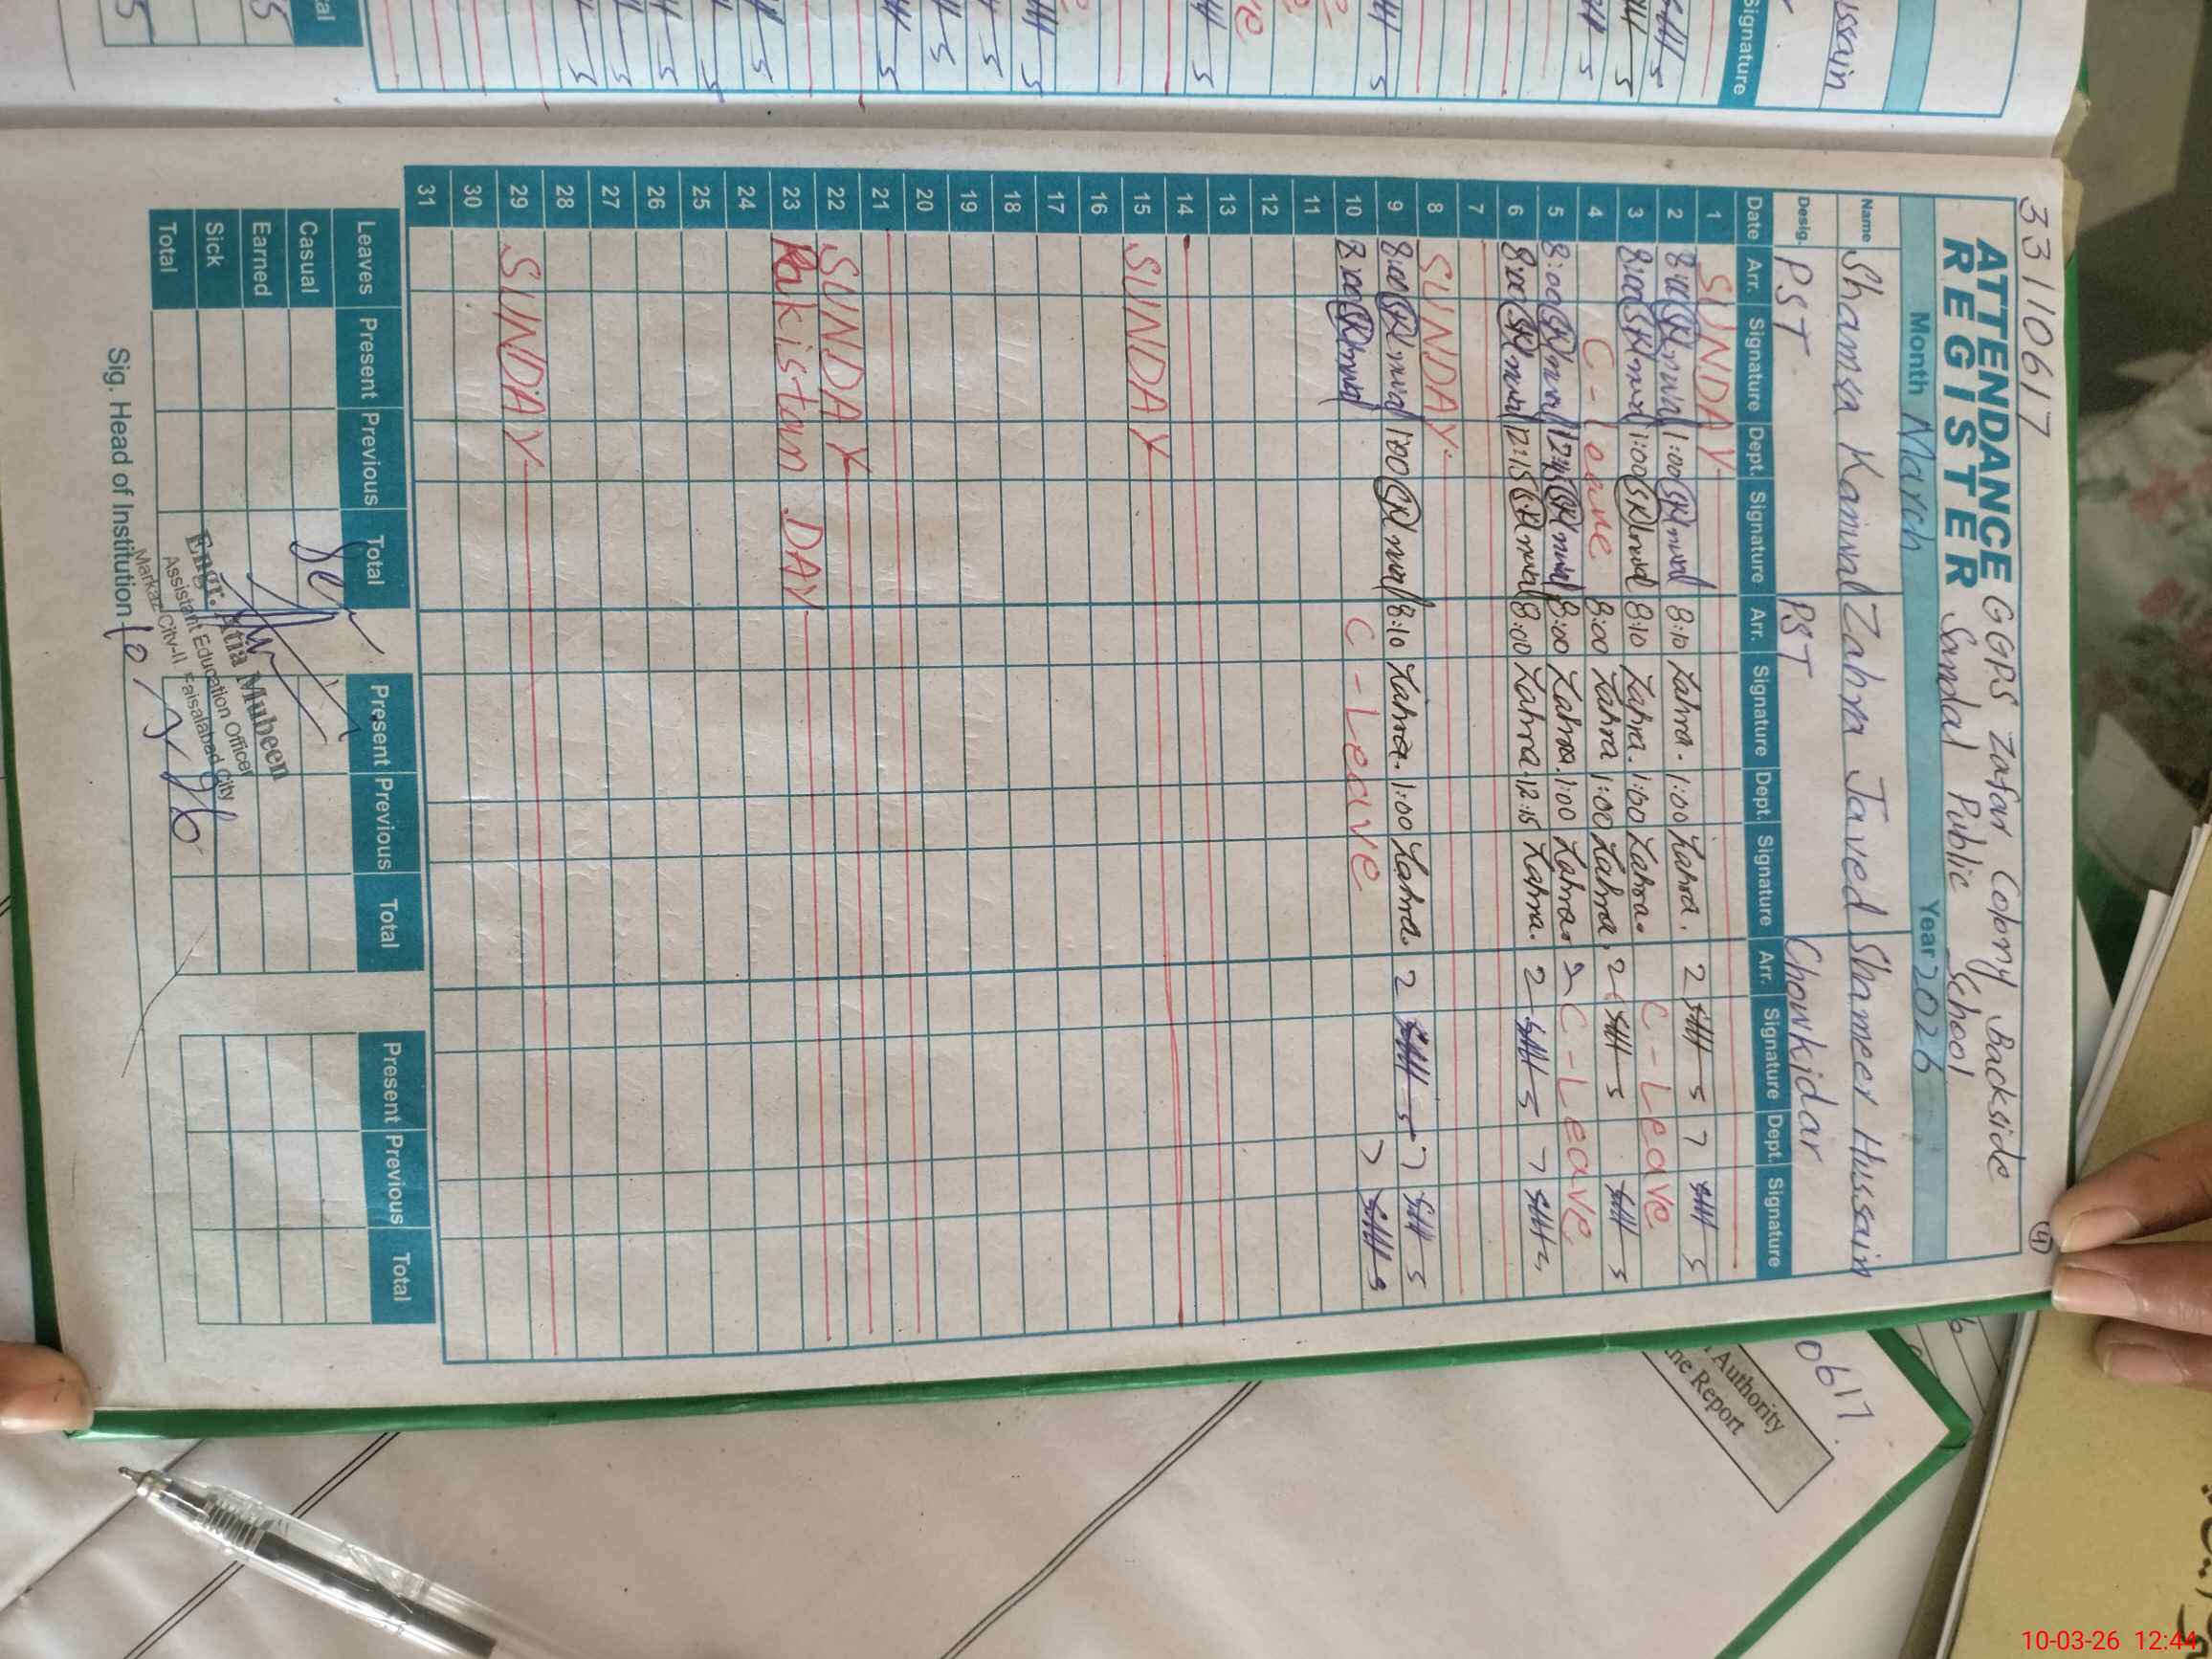 33110617
4
ATTENDANCE REGISTER
GGPS Zafar Colony Backside
Sandal Public School
Month March Year 2026
Name Shamsa Kanwal Zahra Javed Shameer Hussain
Desig. PST PST Chowkidar
Date Arr. Signature Dept. Signature Arr. Signature Dept. Signature Arr. Signature Dept. Signature
1 SUNDAY
2 8:00 1:00 8:10 Zahra. 1:00 Zahra. 2 5 7 5
3 8:00 1:00 8:10 Zahra. 1:00 Zahra. C-Leave
4 C-leave 8:00 Zahra 1:00 Zahra. 2 5 5
5 8:00 8:00 Zahra. 1:00 Zahra. C-Leave
6 8:00 12:15 8:00 Zahra. 12:15 Zahra. 2 5 7
7
8 SUNDAY
9 8:00 1:00 8:10 Zahra. 1:00 Zahra. 2 5 7 5
10 8:00 C-Leave 7
11
12
13
14
15 SUNDAY
16
17
18
19
20
21
22 SUNDAY
23 Pakistan DAY
24
25
26
27
28
29 SUNDAY
30
31
Leaves Present Previous Total Present Previous Total Present Previous Total
Casual
Earned
Sick
Total
Muheen
Assistant Education Officer
Markaz City-II Faisalabad City
Sig. Head of Institution
Signature
0617
Authority
Report
10-03-26 12:44